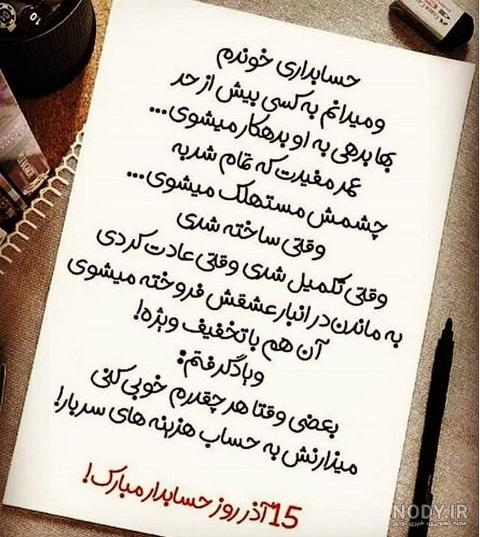 حسابداری خوندم
و میدانم به کسی بیش از حد
بها بدهی به او بدهکار میشوی...
عمر مفیدت که تمام شد به
چشمش مستهلک میشوی...
وقتی ساخته شدی
وقتی تکمیل شدی وقتی عادت کردی
به ماندن در انبار عشقش فروخته میشوی
آن هم با تخفیف ویژه!
و یادگرفتم:
بعضی وقتا هر چقدرم خوبی کنی
میذارنش به حساب هزینه های سربار!
15 آذر روز حسابدار مبارک!
NODY.IR